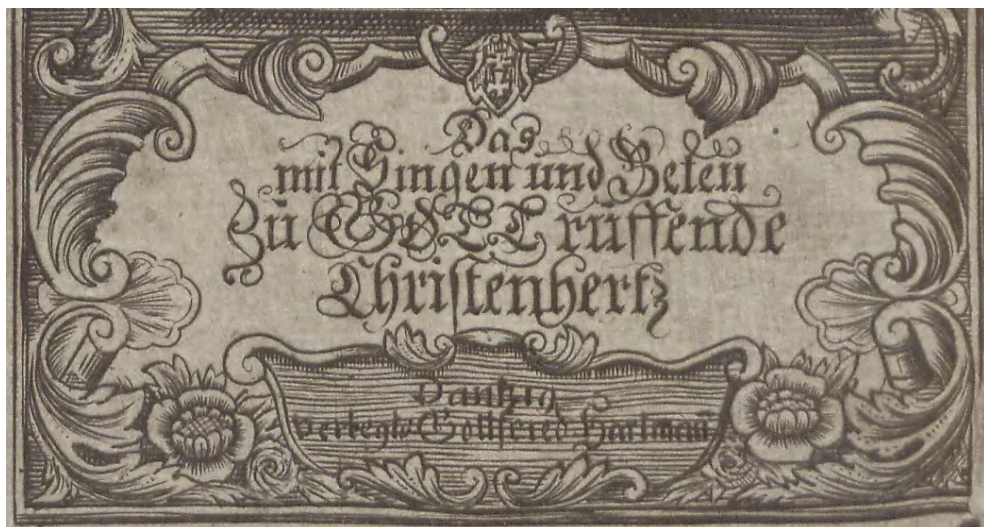 Das
mit Singen und Beten
Zu GOTT ruffende
Christenhertz
Dantzig
verlegts Gottfried Hartmañ